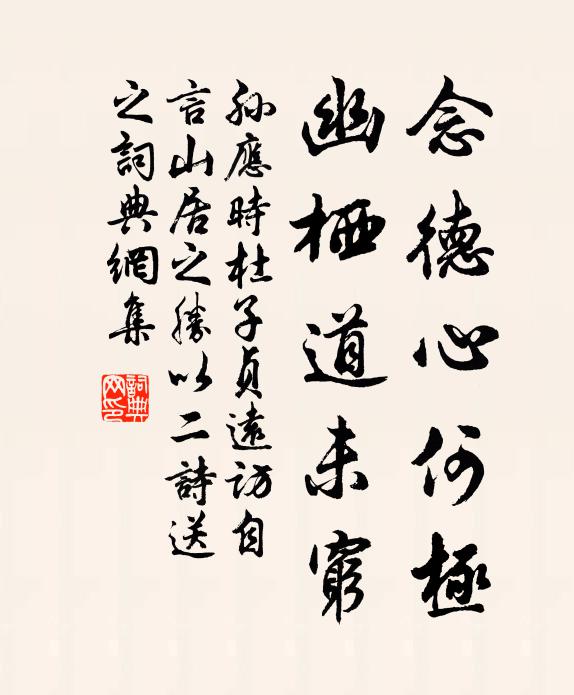 念德心何極
幽栖道未窮
孫應時杜子貞遠訪自
言山居之勝以二詩送
之詞典網集
詞典网印